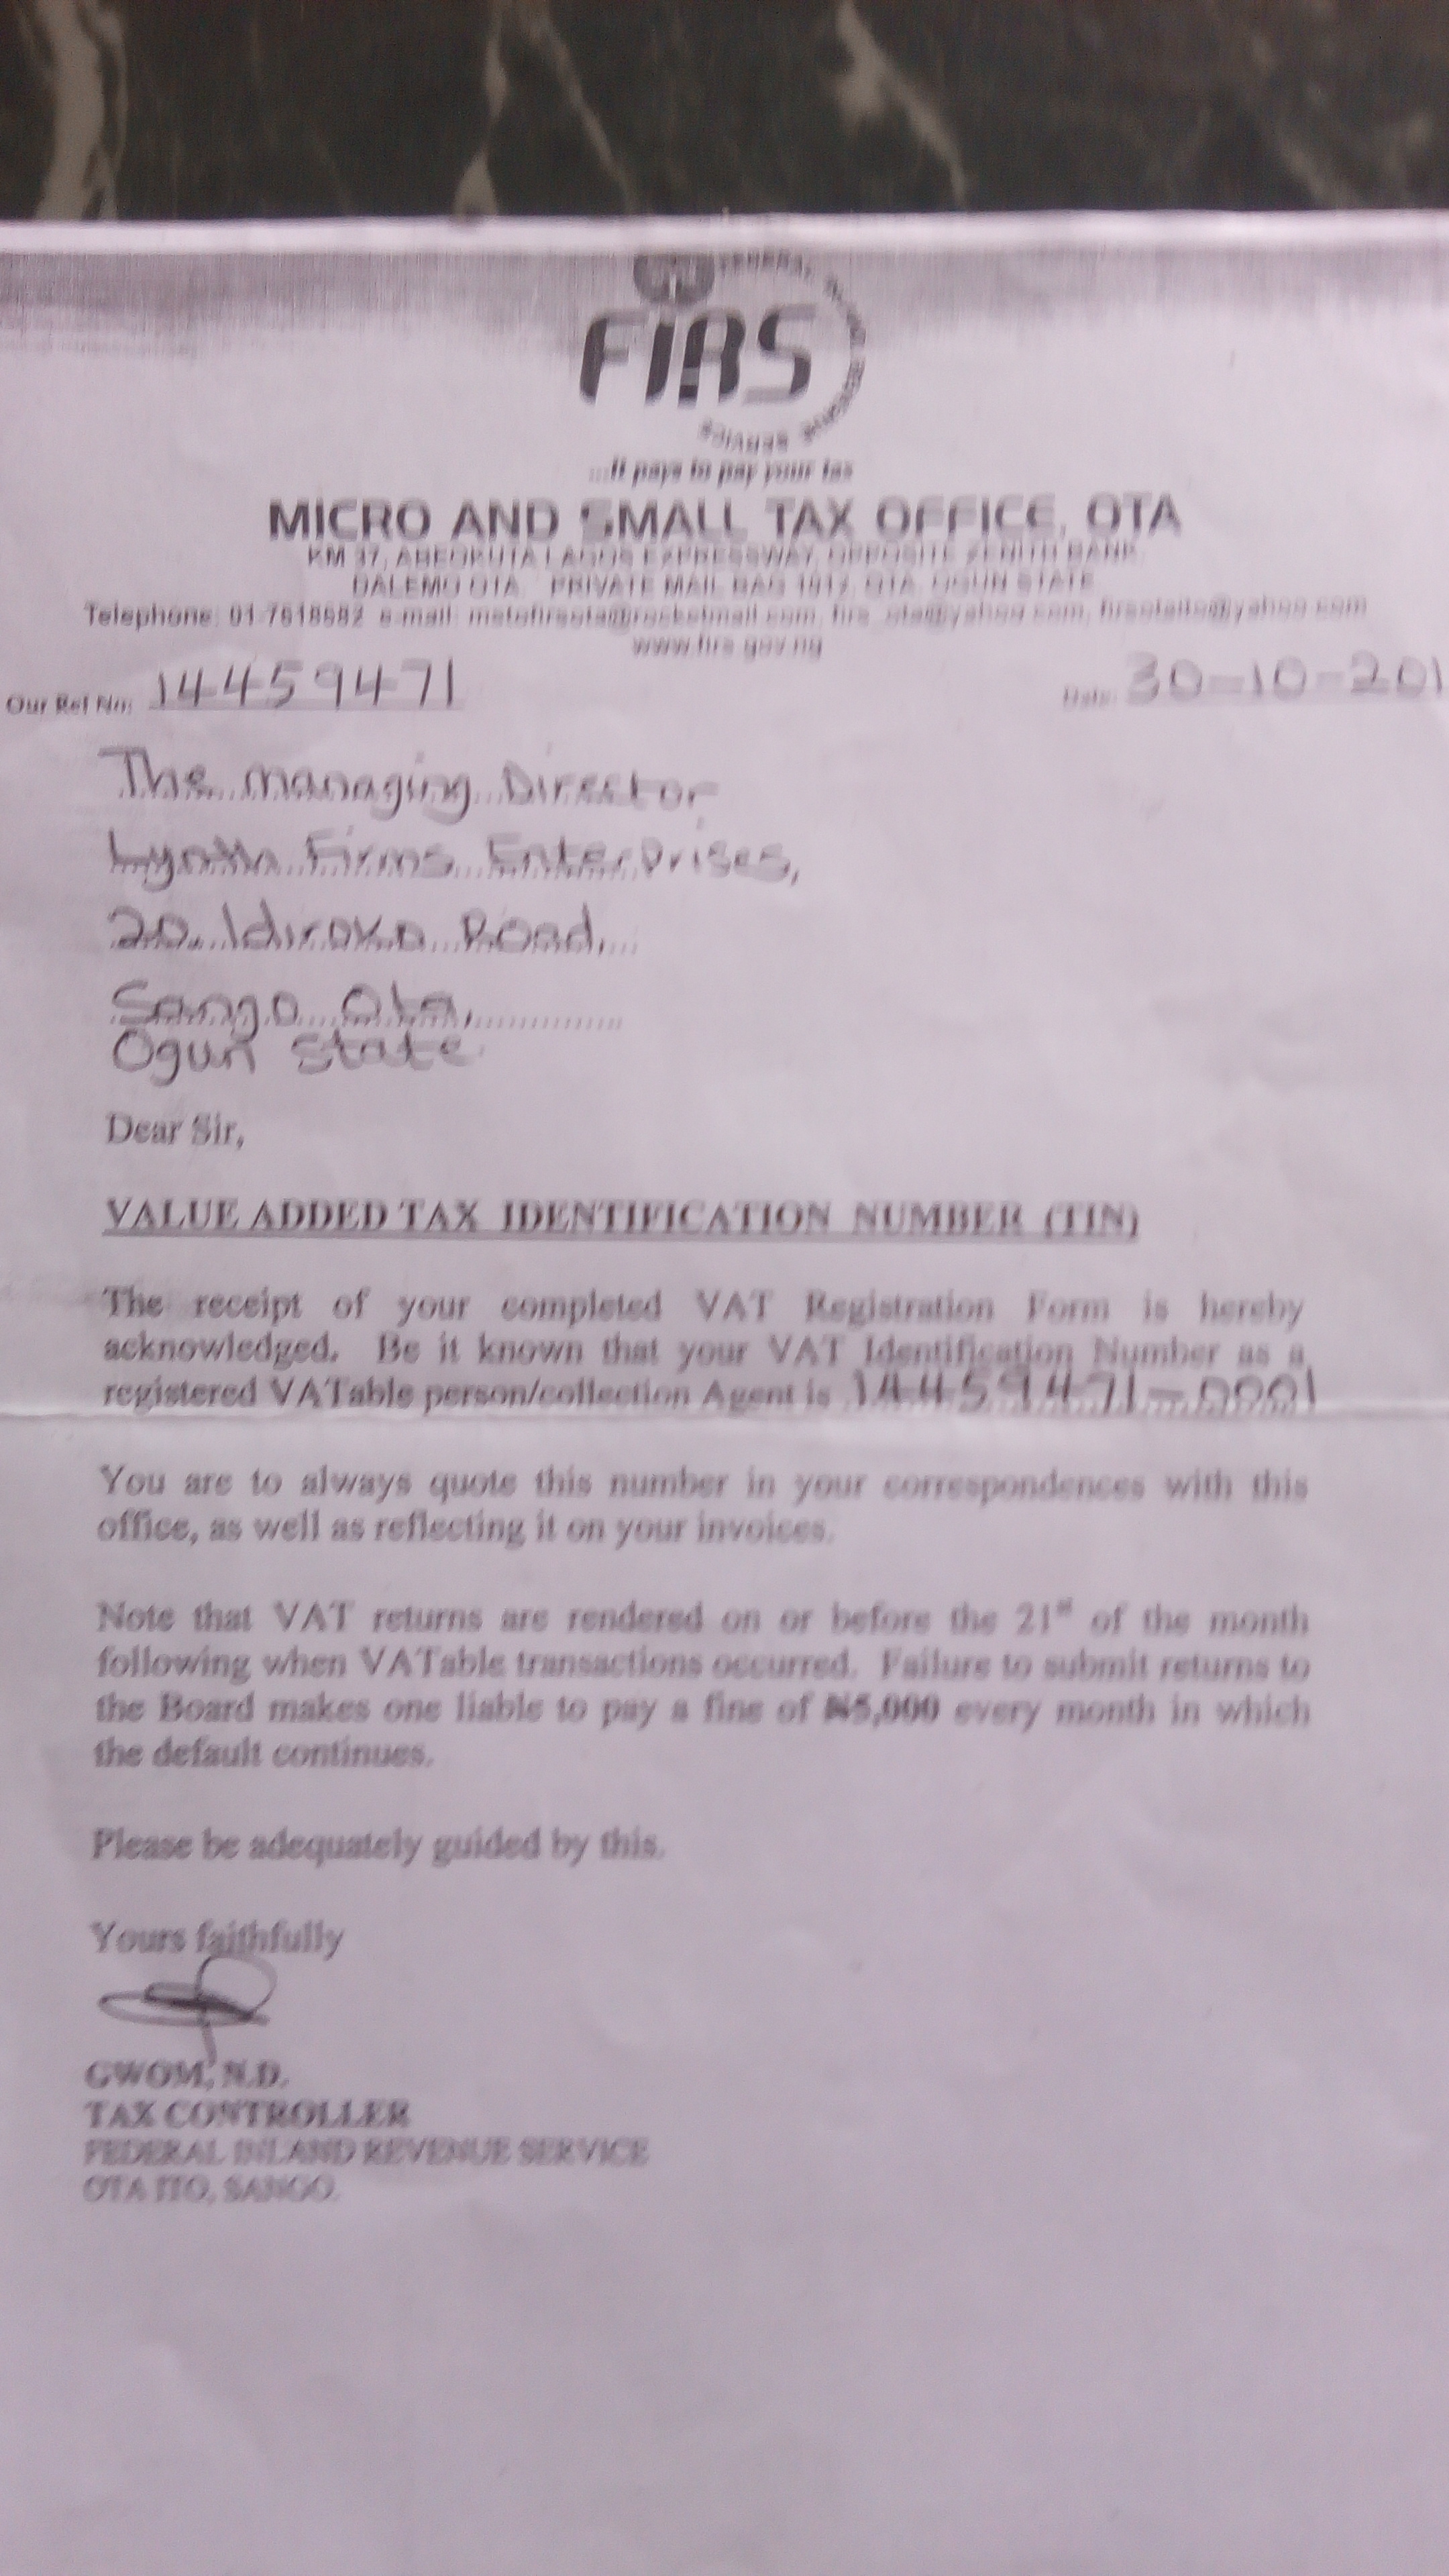 FIRS
FEDERAL INLAND REVENUE SERVICE
...it pays to pay your tax
MICRO AND SMALL TAX OFFICE, OTA
KM 37, ABEOKUTA LAGOS EXPRESSWAY, OPPOSITE ZENITH BANK
DALEMO OTA. PRIVATE MAIL BAG 1012, OTA, OGUN STATE
Telephone: 01-7618682 e-mail: mstofirsota@rocketmail.com, firs_ota@yahoo.com,
www.firs.gov.ng
Our Ref No: 14459471 Date: 30-10-201
The Managing Director
Firms Enterprises,
20, Idiroko Road,
Sango Ota,
Ogun State
Dear Sir,
VALUE ADDED TAX IDENTIFICATION NUMBER (TIN)
The receipt of your completed VAT Registration Form is hereby
acknowledged. Be it known that your VAT Identification Number as a
registered VATable person/collection Agent is 14459471-0001
You are to always quote this number in your correspondences with this
office, as well as reflecting it on your invoices.
Note that VAT returns are rendered on or before the 21st of the month
following when VATable transactions occurred. Failure to submit returns to
the Board makes one liable to pay a fine of ₦5,000 every month in which
the default continues.
Please be adequately guided by this.
Yours faithfully
GWOM, N.D.
TAX CONTROLLER
FEDERAL INLAND REVENUE SERVICE
OTA ITO, SANGO.